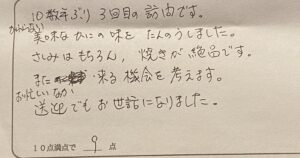 10数年ぶり3回目の訪問です。
美味なかにの味をたんのうしました。
さしみはもちろん、焼きが絶品です。
また 来る機会を考えます。
お忙しいなか
送迎でもお世話になりました。
10点満点で 9 点